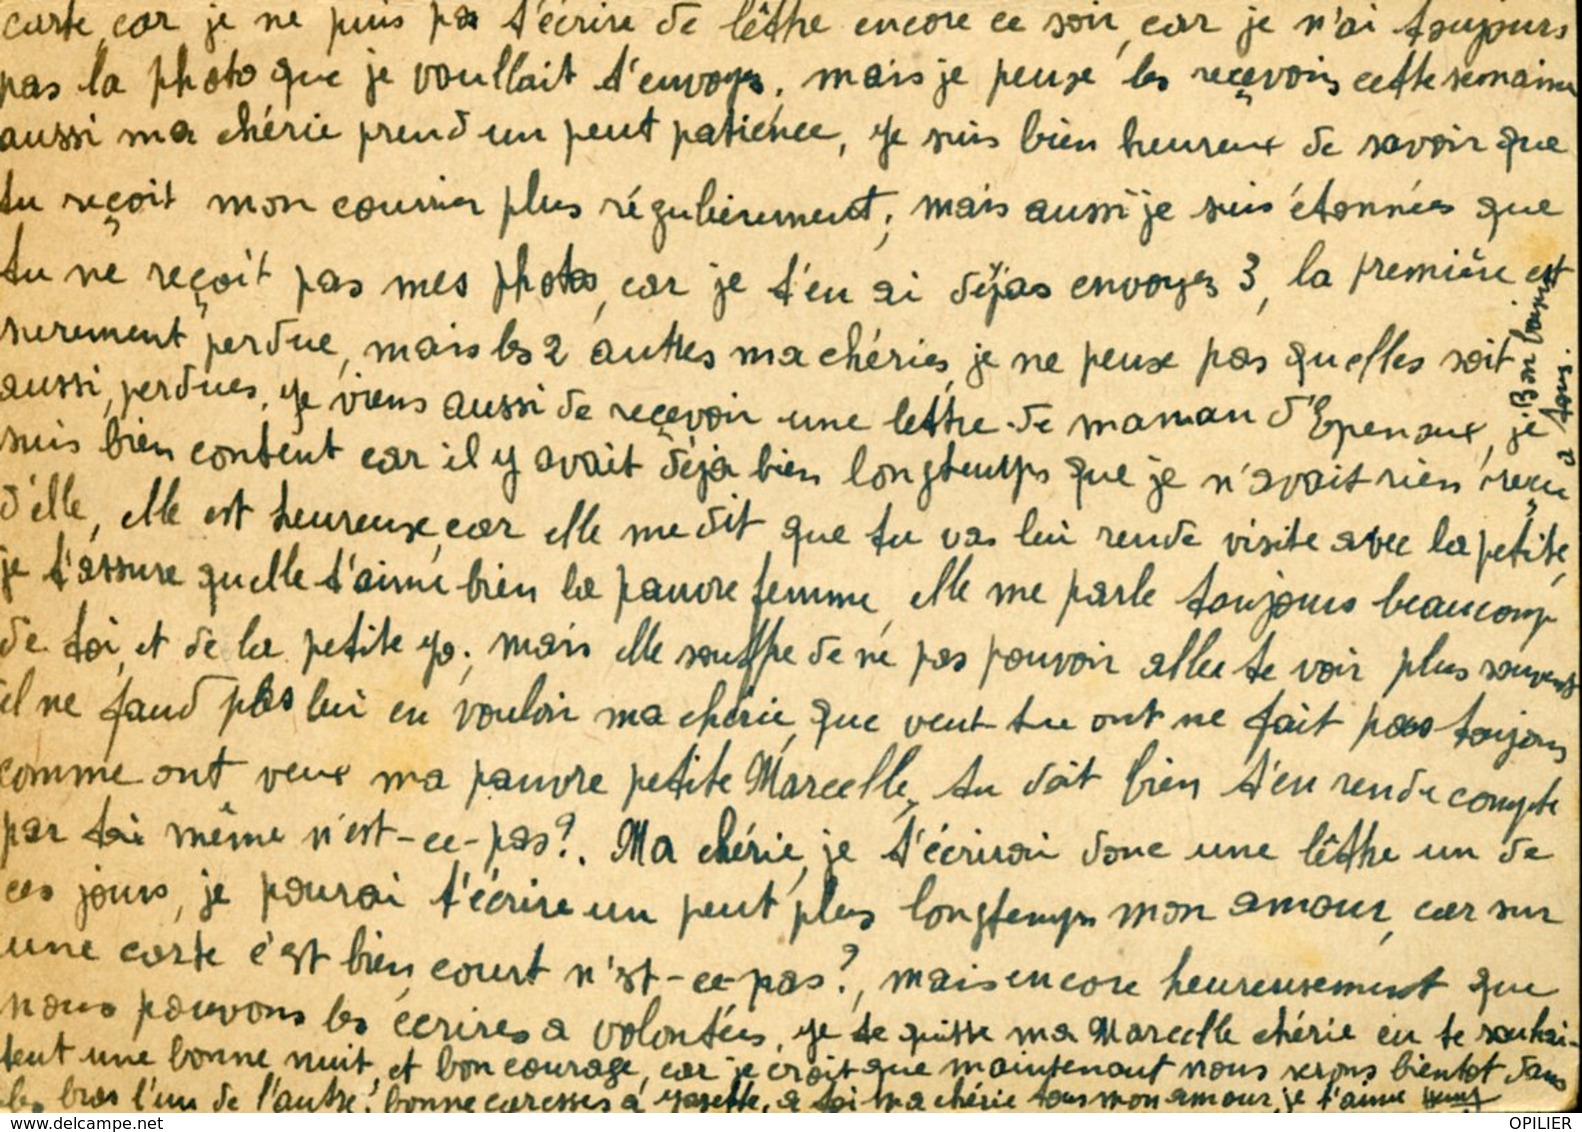 carte, car je ne puis pas t'écrire de lêthe encore ce soir, car je n'ai toujours
pas la photo que je voullait t'envoyer, mais je pense les reçevoirs cette semaine
aussi ma chérie prend un peut patience, je suis bien heureux de savoir que
tu reçoit mon courrier plus régulièrement; mais aussi je suis étonnées que
tu ne reçoit pas mes photos, car je t'en ai déjas envoyez 3, la première est
surement perdue, mais les 2 autres ma chéries, je ne pense pas quelles soit
aussi, perdues. Je viens aussi de reçevoir une lettre de maman d'Epenoux, je
suis bien content car il y avait déjà bien longtemps que je n'avait rien reçu
d'elle, elle est heureuse, car elle me dit que tu vas lui rende visite avec la petite,
je t'assure quelle t'aime bien la pauvre femme, elle me parle toujours beaucoup
de toi, et de la petite yo; mais elle souffre de ne pas pouvoir aller te voir plus souvent
il ne faud pas lui en vouloir ma chérie, que veut tu ont ne fait pas toujours
comme ont veux ma pauvre petite Marcelle, tu doit bien t'en rendre compte
par toi même n'est-ce-pas?. Ma chérie, je t'écrirai donc une lêthe un de
ces jours, je pourai t'écrire un peut plus longtemps mon amour, car sur
une carte c'est bien court n'est-ce-pas?, mais encore heureusement que
nous pouvons les écrires a volontées. Je te quitte ma Marcelle chérie en te souhai-
tent une bonne nuit, et bon courage, car je croit que maintenant nous serons bientot dans
les bras l'un de l'autre. bonne caresses a yosette, a toi ma chérie tous mon amour, je t'aime
Bon baisers
a tous.
delcampe.net
OPILIER